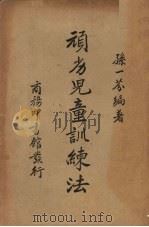 孫一芬編著
頑劣兒童訓練法
商務印書館發行